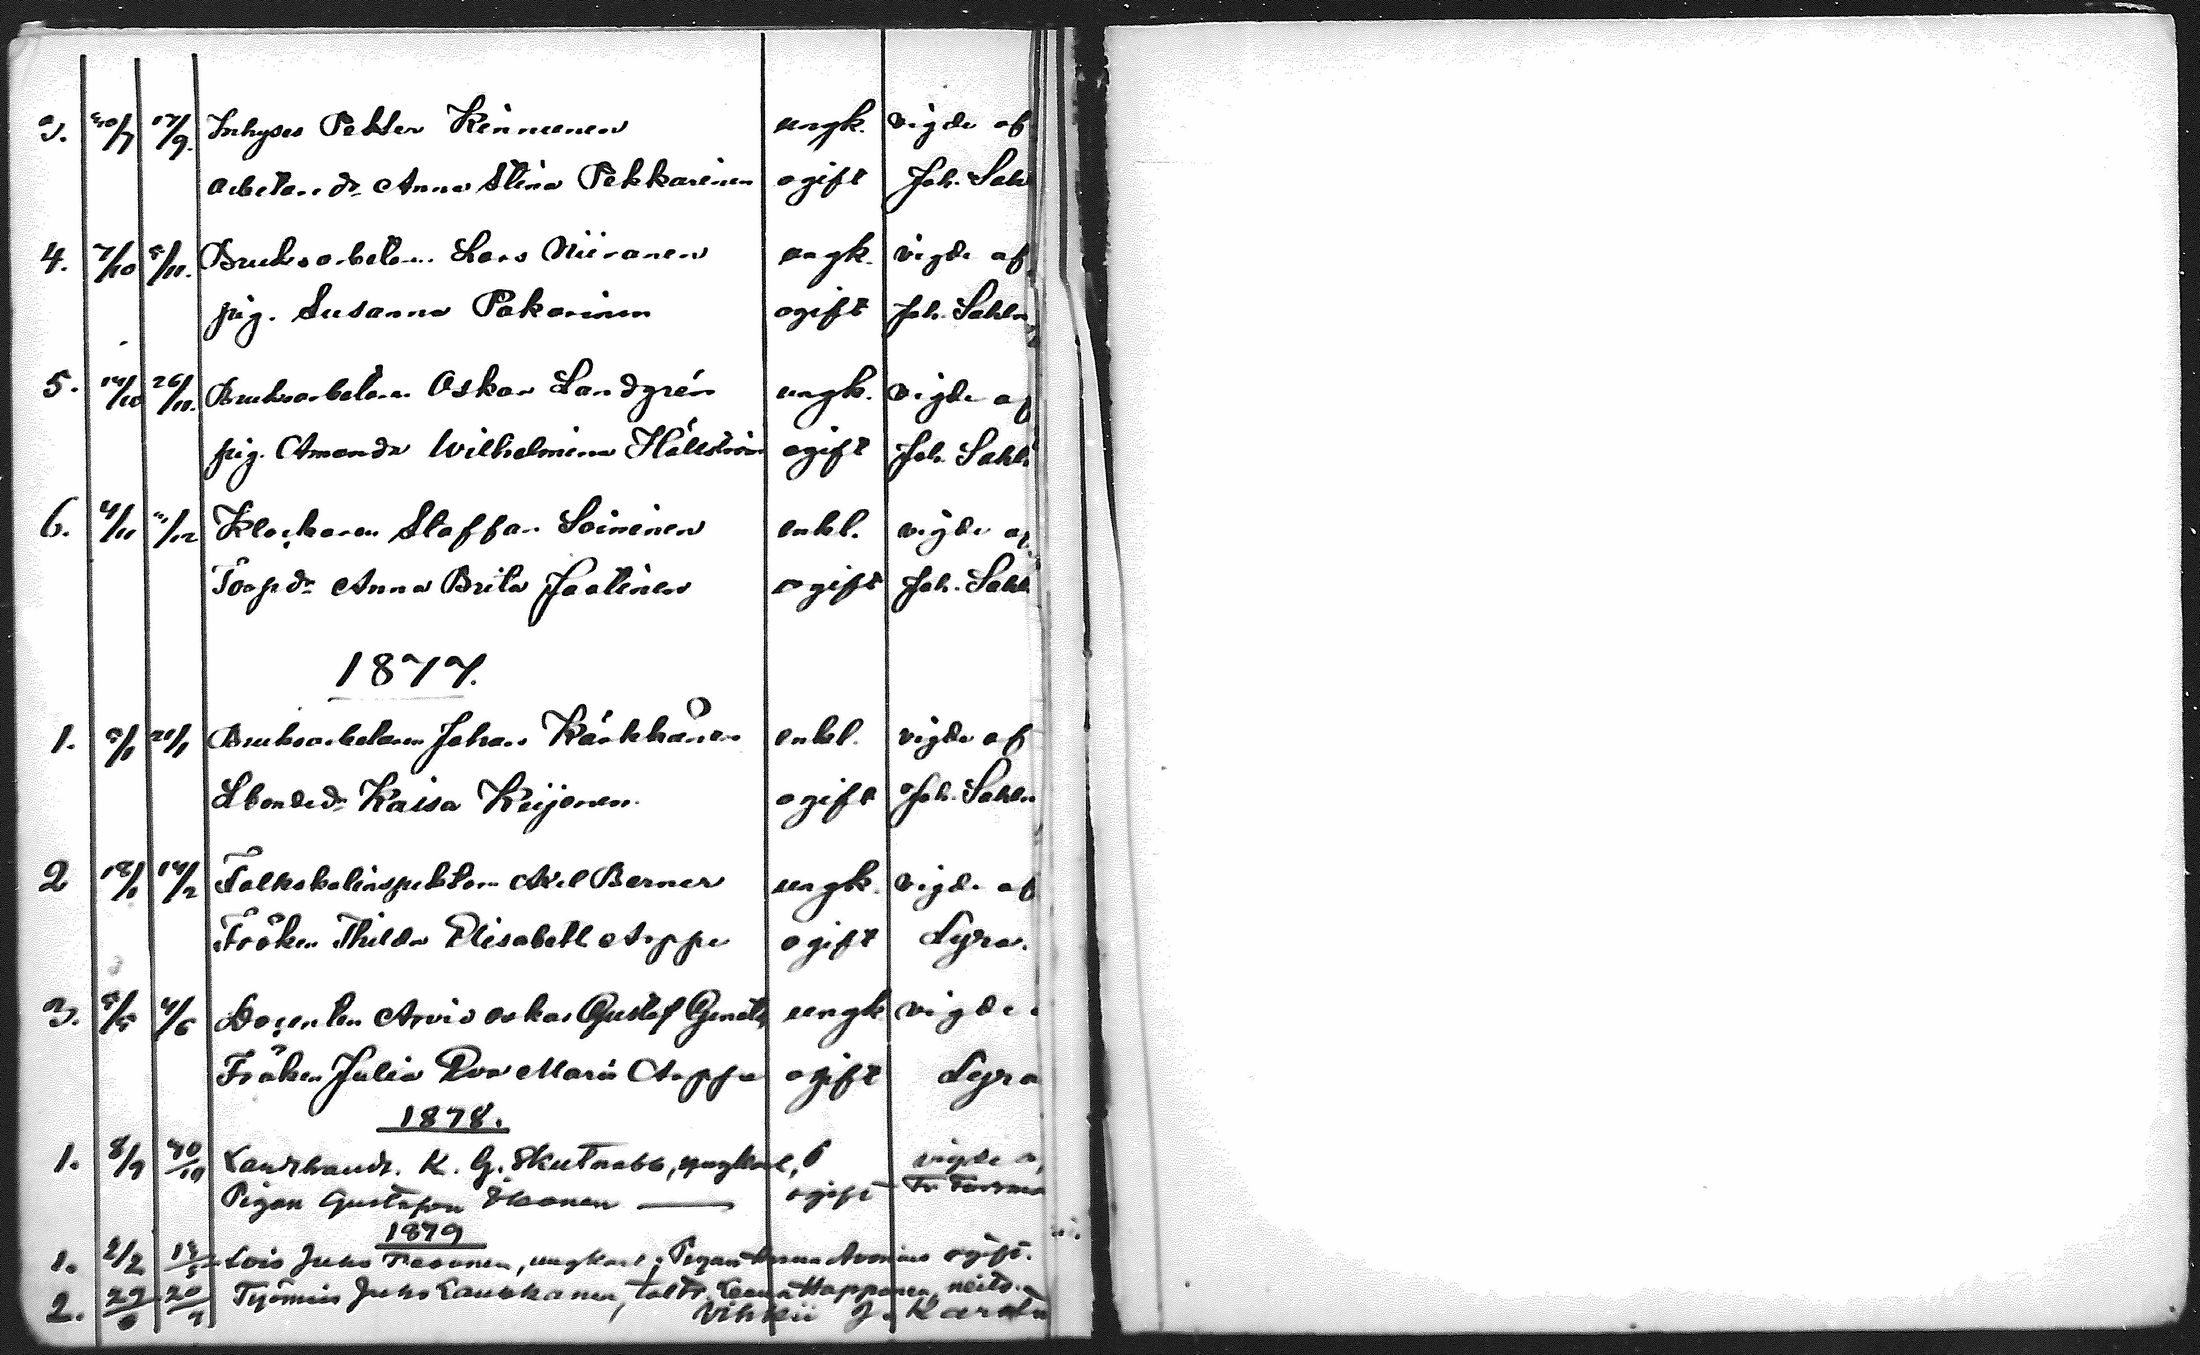 3. 30/7 17/9. Inhyses Petter Kinnunen ungk. vigde af
arbetare dr Anna Stina Pekkarinen ogift Joh. Sahl
4. 7/10 5/11. Bruksarbetaren Lars Niiranen ungk. vigde af
pig. Susanna Pakarinen ogift Joh. Sahln
5. 14/10 26/11. Bruksarbetaren Oskar Landgrén ungk. vigde af
pig. Amanda Wilhelmina Hällström ogift Joh. Sahl
6. 4/11 /12 Klockaren Staffan Soininen enkl. vigde af
Torp dr Anna Brita Jaatinen ogift Joh. Sahl
1877.
1. 5/1 21/1 Bruksarbetaren Johan Kärkkänen enkl. vigde af
Lbonde dr Kaisa Keijonen. ogift Joh. Sahln
2 18/1 14/2 Folkskolinspektorn Axel Berner ungk. vigde af
Fröken Thilda Elisabeth Arppe ogift Lyra.
3. 5/5 4/6 Docenten Arvid Oskar Gustaf Genetz ungk vigde
Fröken Julia Eva Maria Arppe ogift Lyra
1878.
1. 8/9 30/10 Landthandl. K. G. Skutnabb, ungkarl, vigde a
Pigan Gustafva Ikonen — ogift Fr. Forsma
1879
1. 2/2 Lois Juho ungkarl; Pigan Anna ogift.
2. Työmies Juho Laukkanen, Leena Happonen, neits.
Vihkii J. Karst